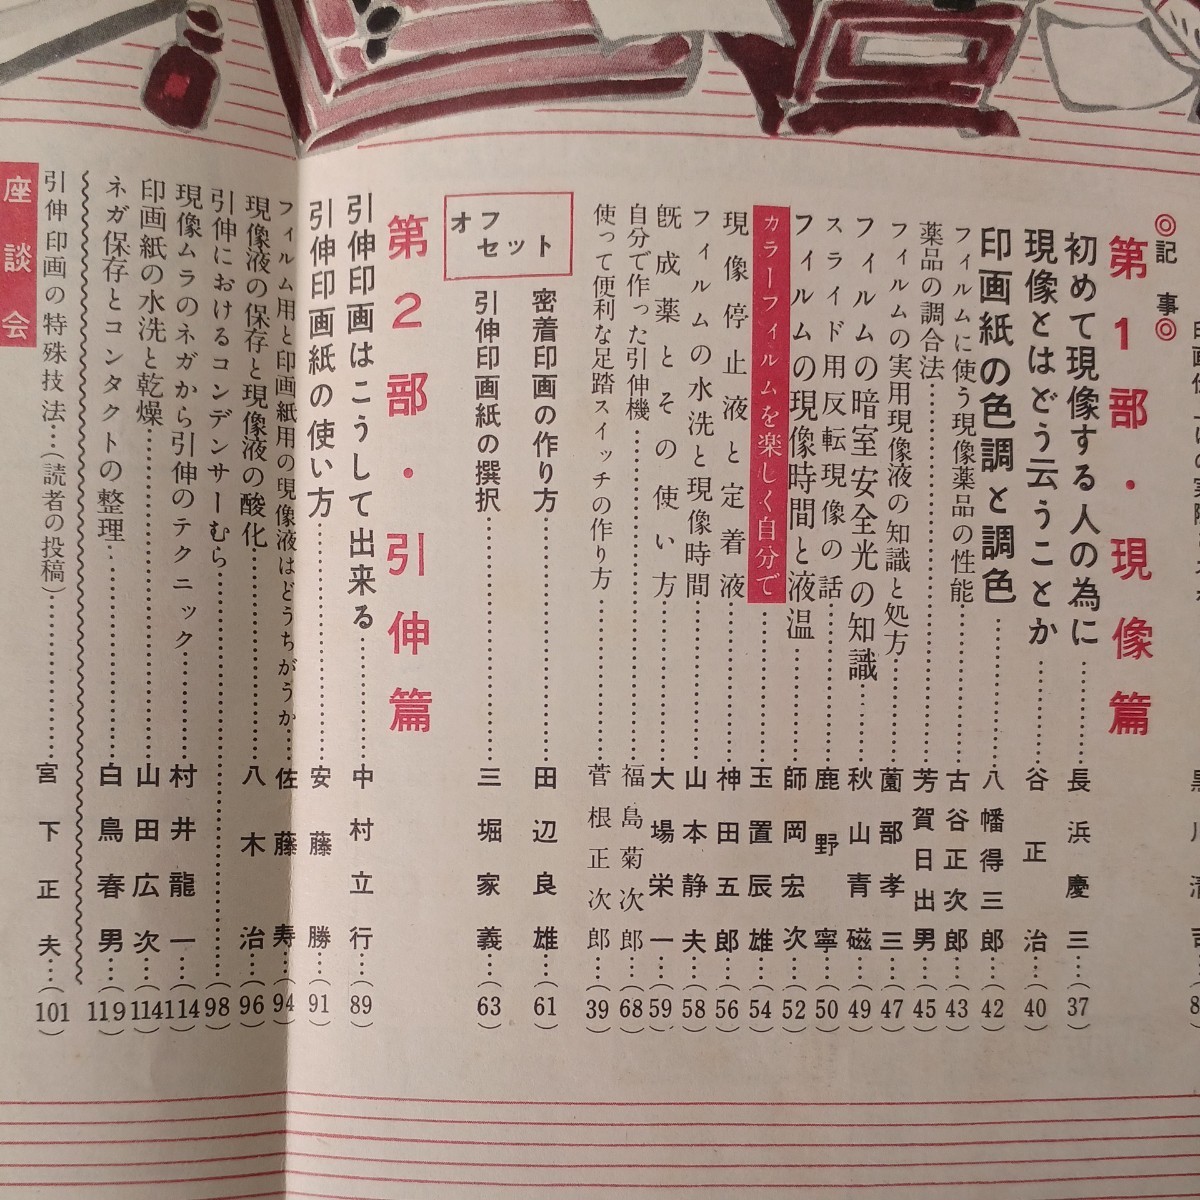 ◎記事◎
第1部・現像篇
初めて現像する人の為に……長浜慶三…(37)
現像とはどう云うことか……谷正治…(40)
印画紙の色調と調色……八幡得三郎…(42)
フィルムに使う現像薬品の性能……古谷正次郎…(43)
薬品の調合法……芳賀日出男…(45)
フィルムの実用現像液の知識と処方……薗部孝三…(47)
フィルムの暗室安全光の知識……秋山青磁…(49)
スライド用反転現像の話……鹿野寧…(50)
フィルムの現像時間と液温……師岡宏次…(52)
カラーフィルムを楽しく自分で……玉置辰雄…(54)
現像停止液と定着液……神田五郎…(56)
フィルムの水洗と現像時間……山本静夫…(58)
既成薬とその使い方……大場栄一…(59)
自分で作った引伸機……福島菊次郎…(68)
使って便利な足踏スイッチの作り方……菅根正次郎…(39)
オフセット
密着印画の作り方……田辺良雄…(61)
引伸印画紙の撰択……三堀家義…(63)
第2部・引伸篇
引伸印画はこうして出来る……中村立行…(89)
引伸印画紙の使い方……安藤勝…(91)
フィルム用と印画紙用の現像液はどうちがうか…佐藤寿…(94)
現像液の保存と現像液の酸化……八木治…(96)
引伸におけるコンデンサーむら……(98)
現像ムラのネガから引伸のテクニック……村井龍一…(114)
印画紙の水洗と乾燥……山田広次…(114)
ネガ保存とコンタクトの整理……白鳥春男…(119)
引伸印画の特殊技法…(読者の投稿)……宮下正夫…(101)
座談会